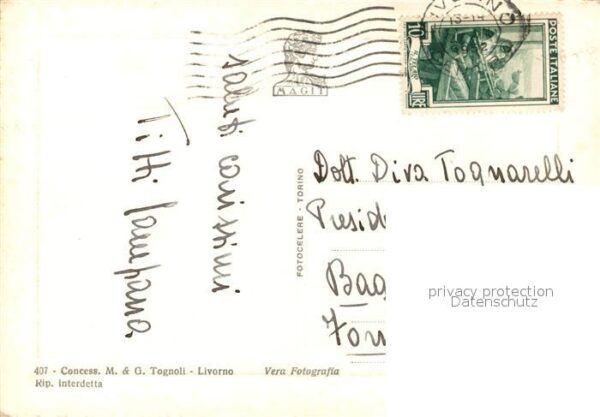 MAGIT
10
POSTE ITALIANE
LIRE
saluti carissimi
Titti
FOTOCELERE - TORINO
Dott. Diva Tognarelli
Presid
Bag
privacy protection
Datenschutz
407 - Concess. M. & G. Tognoli - Livorno
Vera Fotografia
Rip. interdetta